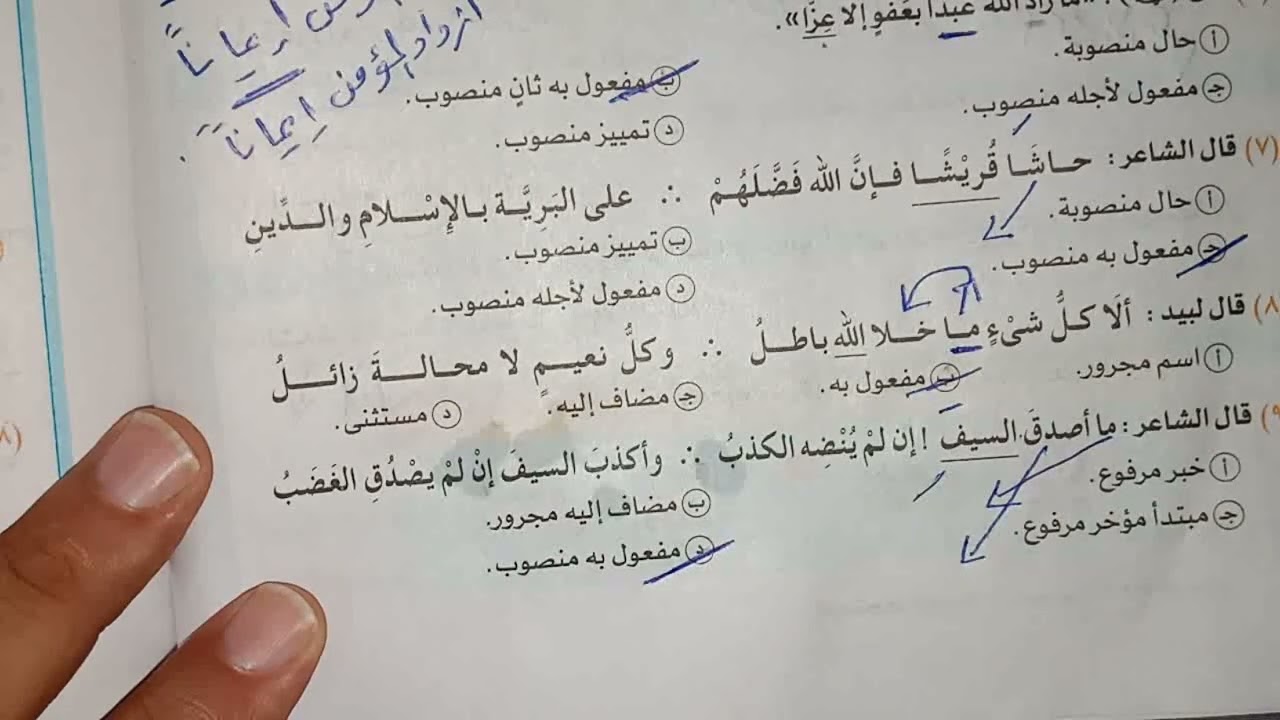 إيمانًا
ازداد المؤمن إيمانًا
«ما زاد الله عبدا بعفوٍ إلا عِزًّا».
أ حال منصوبة. ب مفعول به ثانٍ منصوب.
جـ مفعول لأجله منصوب. د تمييز منصوب.
(٧) قال الشاعر: حـاشَـا قُرَيْشًـا فـإنَّ الله فَضَّلَهُمْ ∴ على البَرِيَّة بـالإِسْـلامِ والـدِّينِ
أ حال منصوبة. ب تمييز منصوب.
جـ مفعول به منصوب. د مفعول لأجله منصوب.
٨) قال لبيد: ألَا كلُّ شىْءٍ ما خلا اللهَ باطلُ ∴ وكلُّ نعيمٍ لا محالةَ زائلُ
أ اسم مجرور. ب مفعول به. جـ مضاف إليه. د مستثنى.
٩) قال الشاعر: ما أصدقَ السيفَ! إن لمْ يُنْضِه الكذبُ ∴ وأكذبَ السيفَ إنْ لمْ يصْدُقِ الغَضَبُ
أ خبر مرفوع. ب مضاف إليه مجرور.
جـ مبتدأ مؤخر مرفوع. د مفعول به منصوب.
(٨